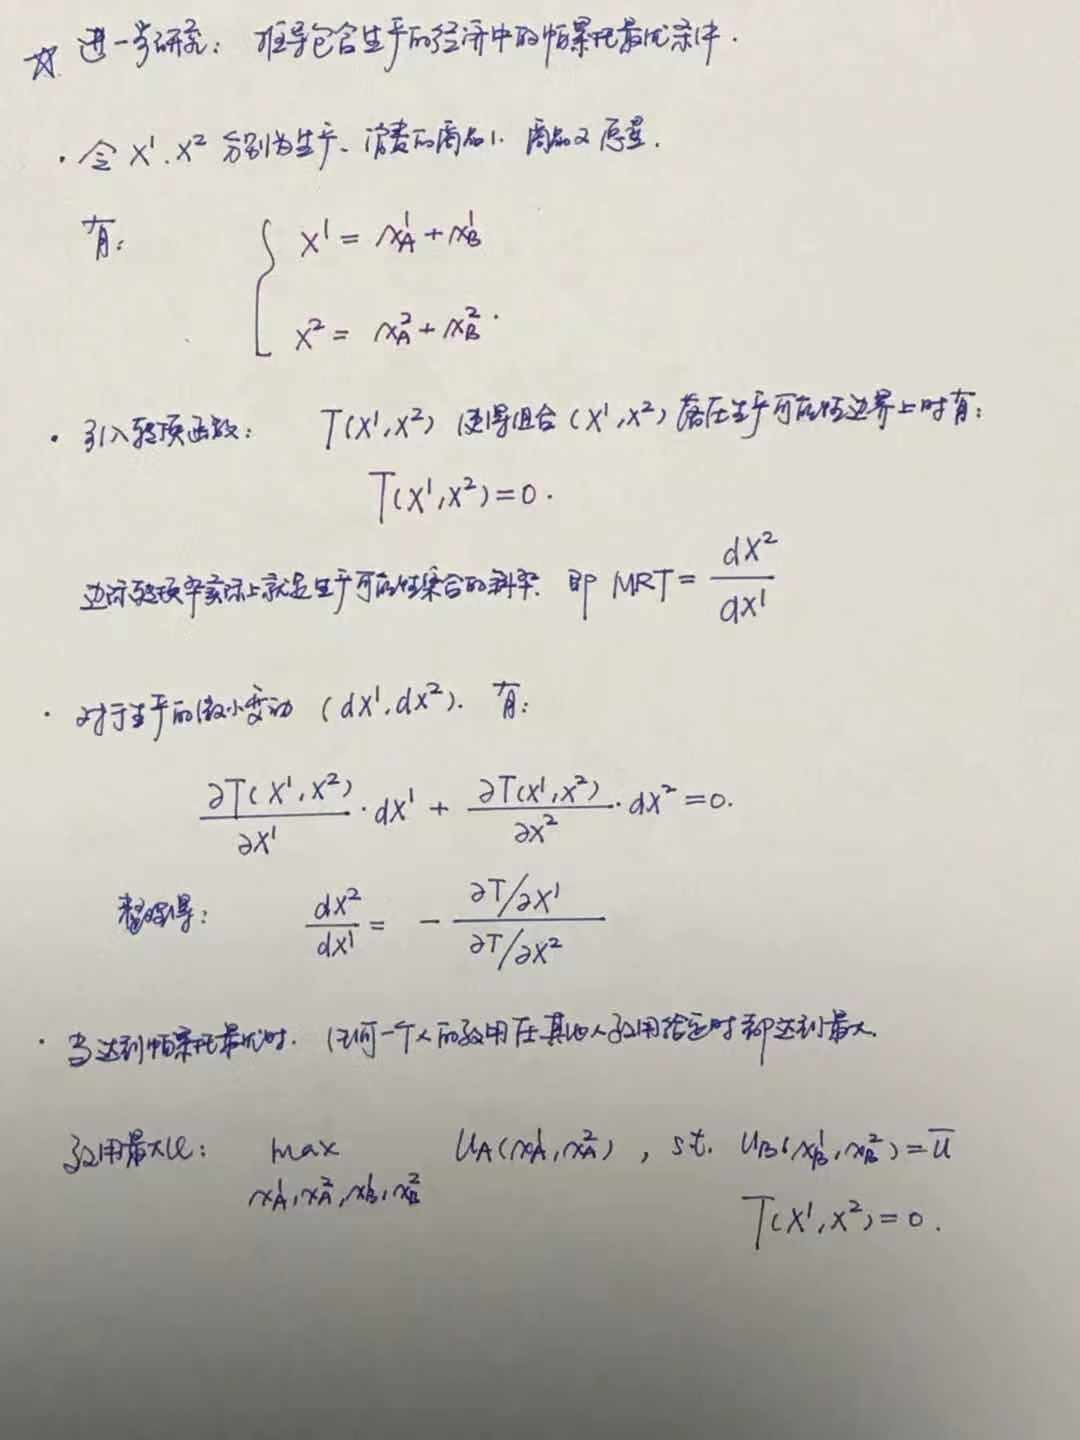 ☆ 进一步研究: 推导包含生产的经济中的帕累托最优条件.
· 令 X¹, X² 分别为生产、消费的商品1、商品2总量.
有: { X¹ = x¹_A + x¹_B
X² = x²_A + x²_B.
· 引入转换函数: T(X¹, X²) 使得组合 (X¹, X²) 落在生产可能性边界上时有:
T(X¹, X²) = 0.
边际转换率实际上就是生产可能性集合的斜率. 即 MRT = dX²/dX¹
· 对于生产的微小变动 (dX¹, dX²). 有:
∂T(X¹, X²)/∂X¹ · dX¹ + ∂T(X¹, X²)/∂X² · dX² = 0.
整理得: dX²/dX¹ = - (∂T/∂X¹)/(∂T/∂X²)
· 当达到帕累托最优时. 任何一个人的效用在其他人效用给定时都达到最大.
效用最大化: max U_A(x¹_A, x²_A), s.t. U_B(x¹_B, x²_B) = ū
x¹_A, x²_A, x¹_B, x²_B
T(X¹, X²) = 0.